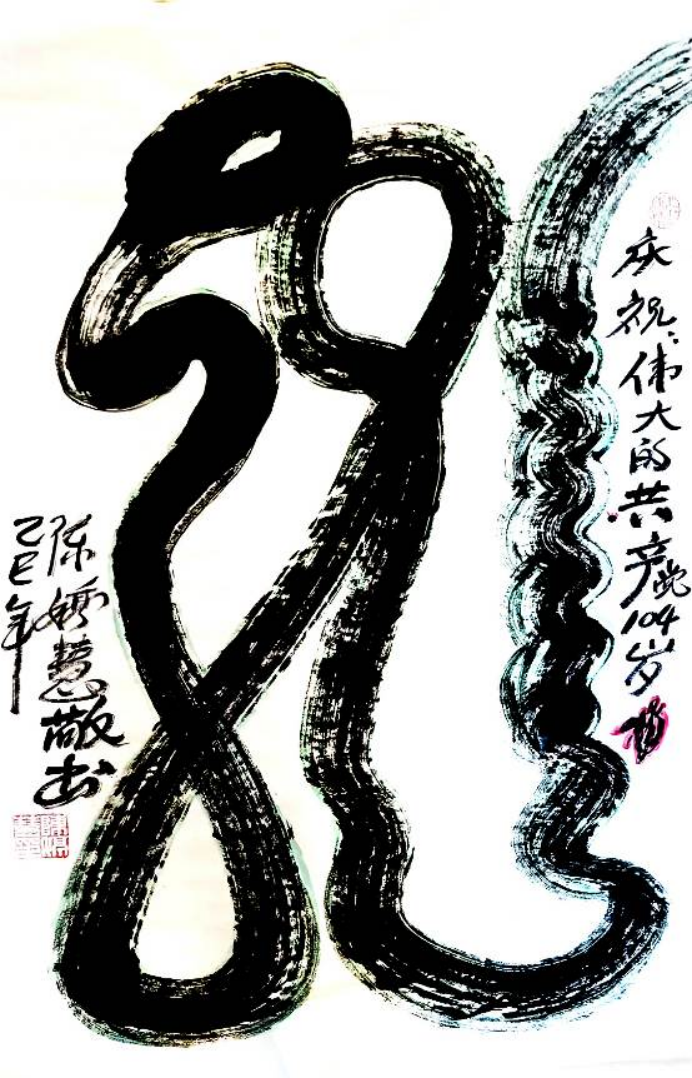 庆祝:伟大的共产党104岁
陈慧敬书
乙巳年